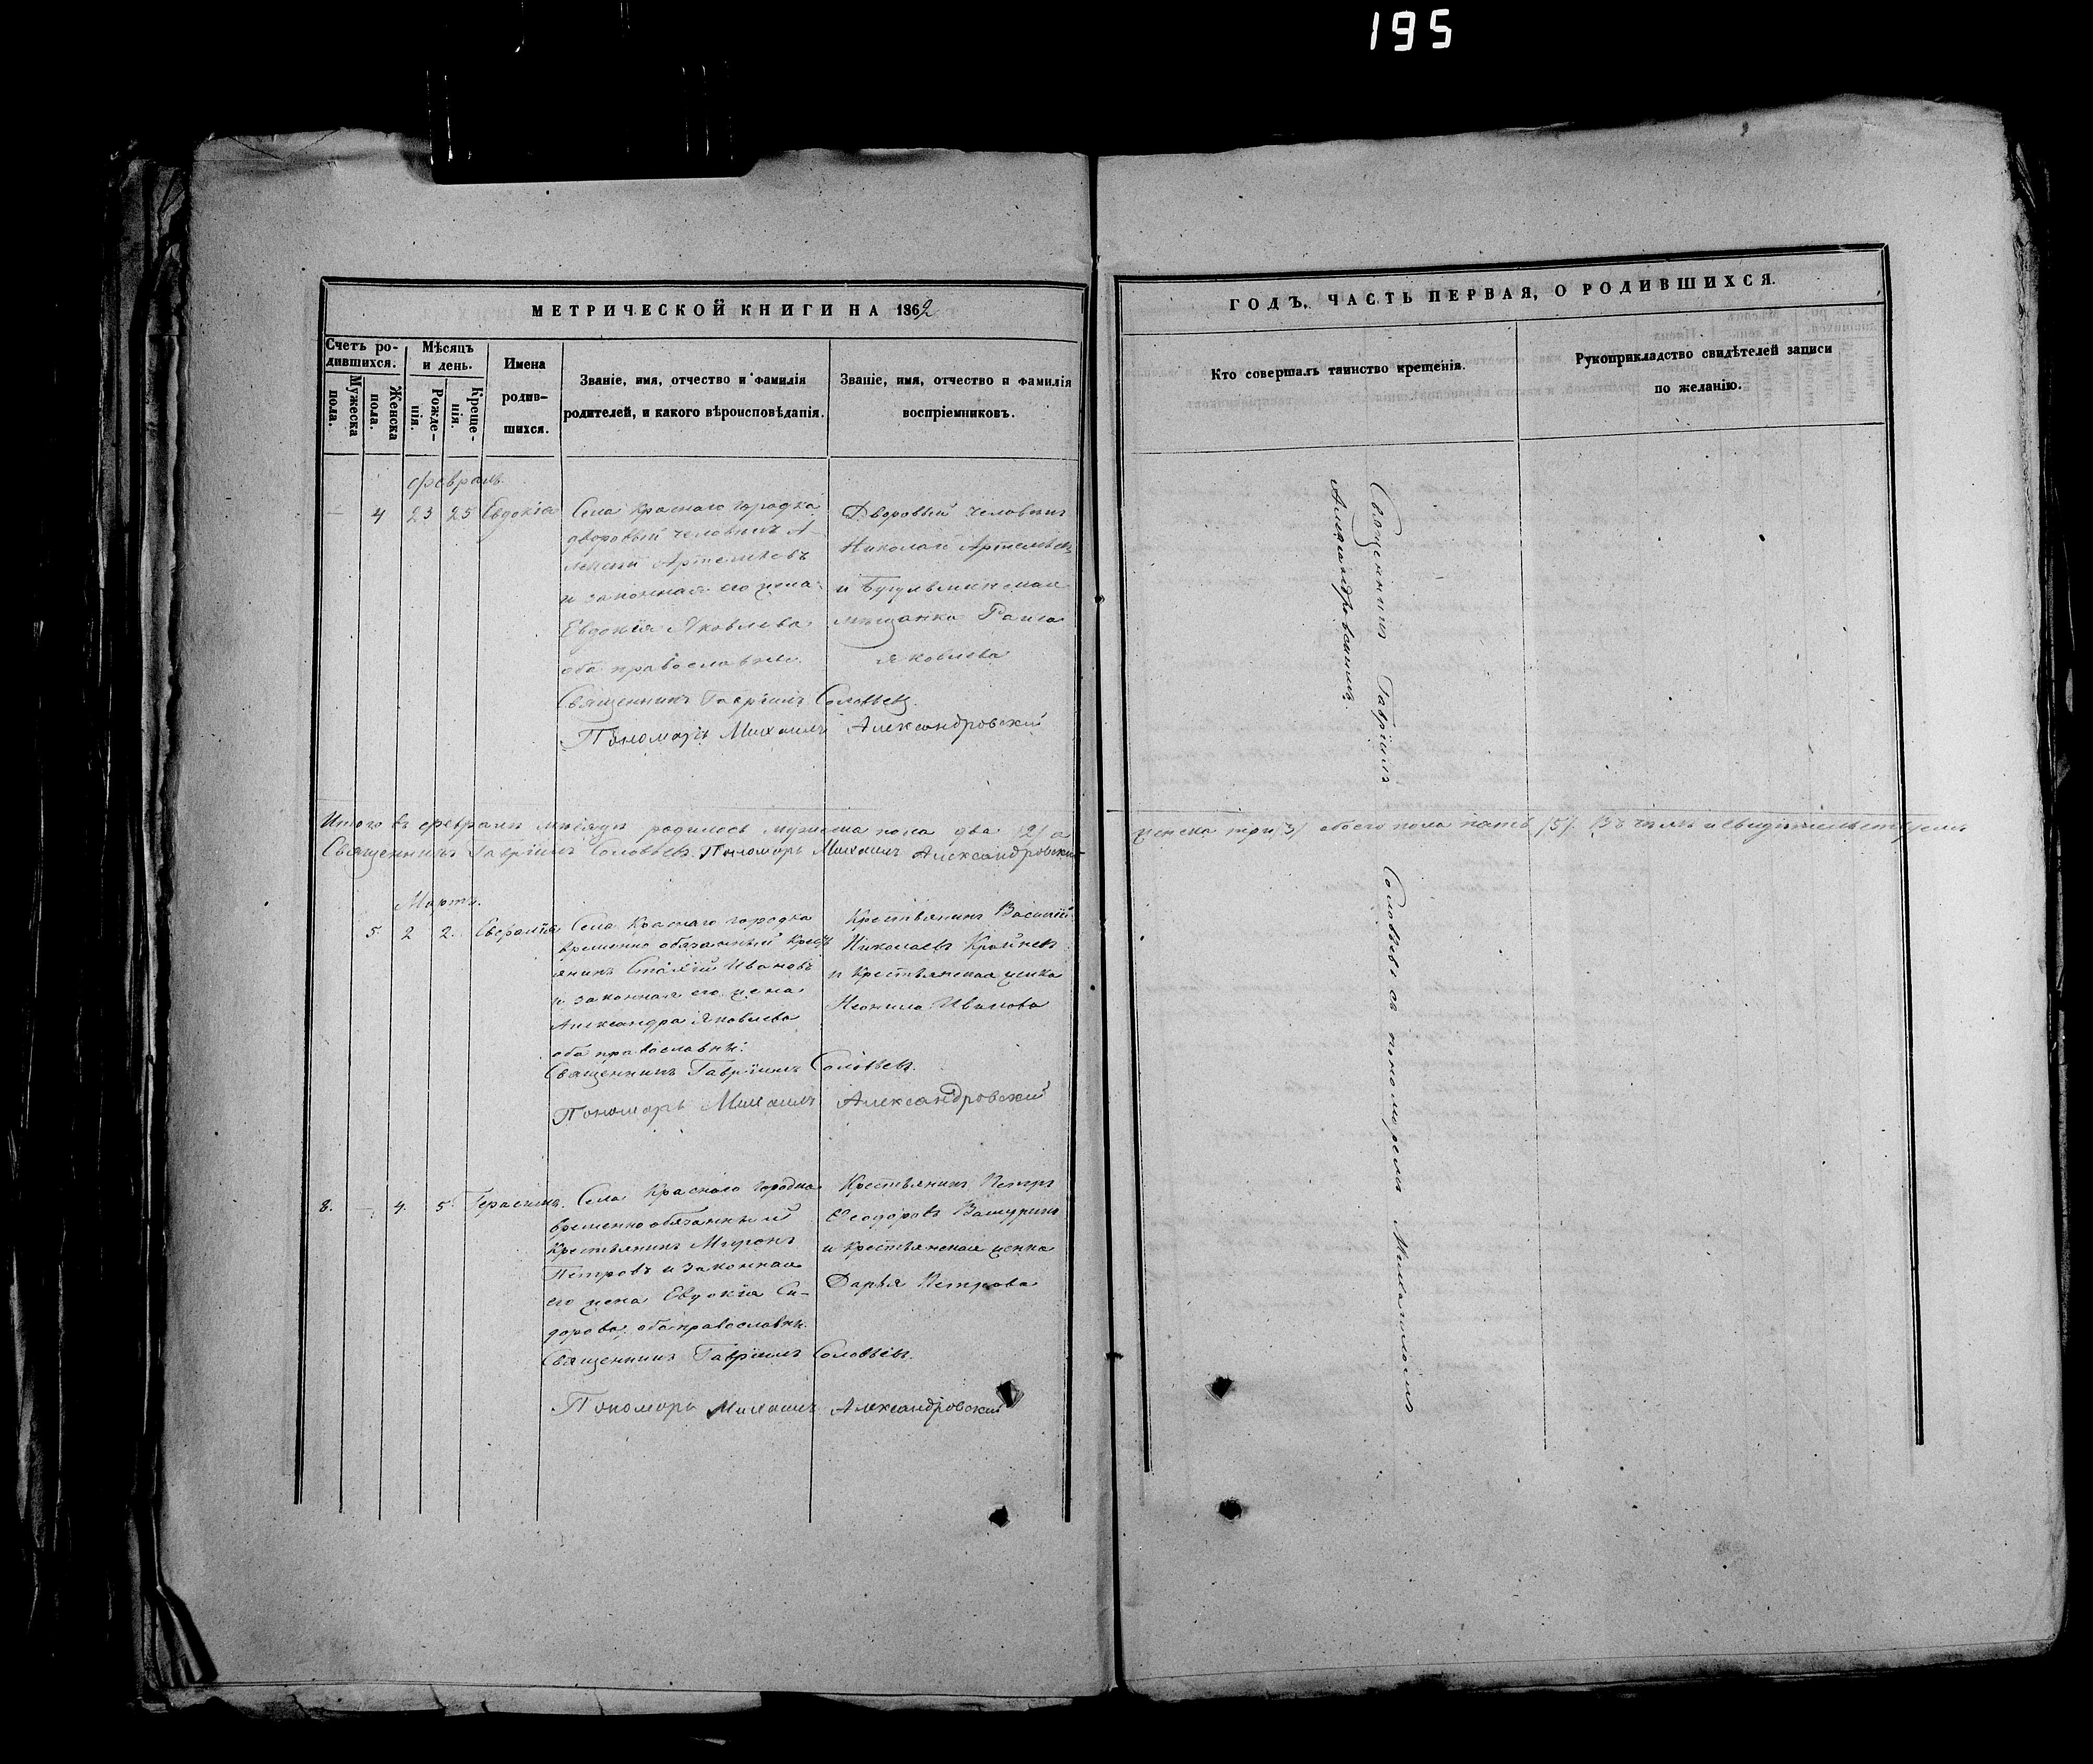 195
МЕТРИЧЕСКОЙ КНИГИ НА 1862
Счетъ ро-
дившихся.
Мужеска
пола.
Женска
пола.
Мѣсяцъ
и день.
Рожде-
нія.
Креще-
нія.
Имена
родив-
шихся.
Званіе, имя, отчество и фамилія
родителей, и какого вѣроисповѣданія.
Званіе, имя, отчество и фамилія
воспріемниковъ.
Февраль.
— 4 23 25 Евдокія
Села Краснаго городка
дворовый человѣкъ А-
лексѣй Артемьевъ
и законная его жена
Евдокія Яковлева
оба православные.
Дворовый человѣкъ
Николай Артемьевъ
и Бугульминская
мѣщанка Раиса
Яковлева
Священникъ Гавріилъ Соловьевъ.
Пономарь Михаилъ Александровскій
Итого въ февралѣ мѣсяцѣ родилось мужеска пола два /2/ а
Священникъ Гавріилъ Соловьевъ. Пономарь Михаилъ Александровскій
Мартъ.
5 2 2.
Села Краснаго городка
временно обязанный крест
янинъ Иванов
и законная его жена
Александра Яковлева
оба православные.
Крестьянинъ Василій
Николаевъ
и крестьянская женка
Неонила Иванова
Священникъ Гавріилъ Соловьевъ.
Пономарь Михаилъ Александровскій
8. — 4. 5. Герасимъ.
Села Краснаго городка
временнообязанный
крестьянинъ Миронъ
Петровъ и законная
его жена Евдокія Си-
дорова, оба православные.
Крестьянинъ Петръ
Ѳеодоровъ
и крестьянская женка
Дарья Петрова
Священникъ Гавріилъ Соловьевъ.
Пономарь Михаилъ Александровскій
ГОДЪ, ЧАСТЬ ПЕРВАЯ, О РОДИВШИХСЯ.
Кто совершалъ таинство крещенія.
Рукоприкладство свидѣтелей записи
по желанію.
Священникъ Гавріилъ Соловьевъ съ пономаремъ Михаиломъ
Александровскимъ.
женска три /3/ обоего пола пять /5/. Въ чемъ и свидѣтельствуемъ